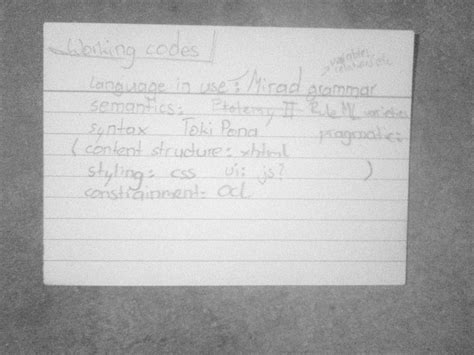 Working codes
language in use: Mirad grammar
semantics: Ptolemy II - Rule ML
syntax Toki Pona pragmatic:
( content structure: xhtml
styling: css ui: js? )
constrainment: Ocl